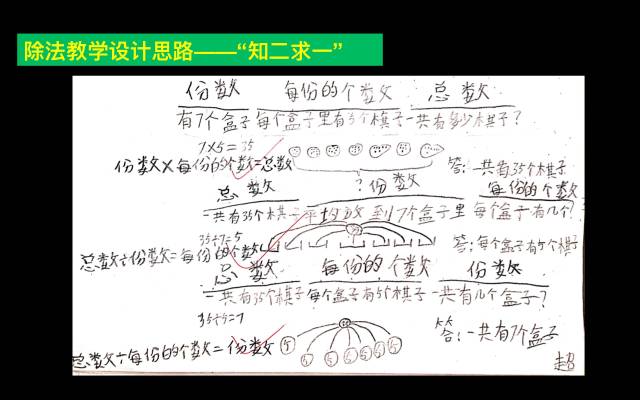 除法教学设计思路——“知二求一”
份数 每份的个数 总数
有7个盒子每个盒子里有5个棋子一共有多少棋子?
7×5=35
份数×每份的个数=总数
答:一共有35个棋子
总数 ?份数 每份的个数
一共有35个棋子平均放到7个盒子里每个盒子有几个?
35÷7=5
总数÷份数=每份的个数
答:每个盒子有5个棋子
总数 每份的个数 份数
一共有35个棋子每个盒子有5个棋子一共有几个盒子?
35÷5=7
答:一共有7个盒子
总数÷每份的个数=份数